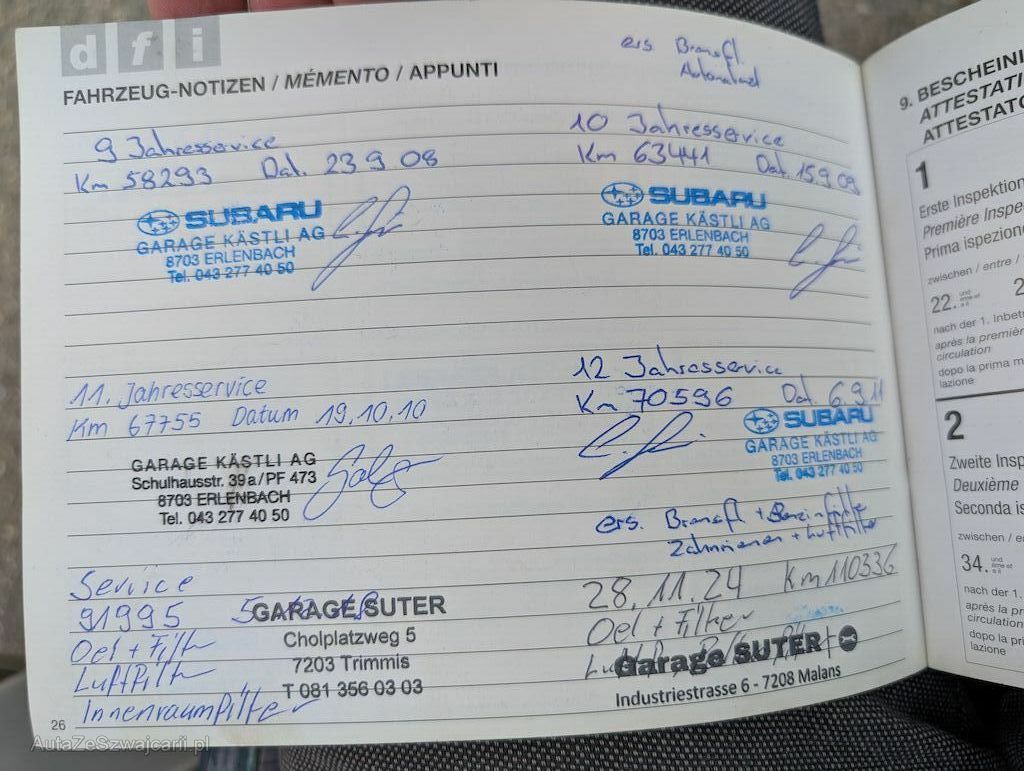 dfi
FAHRZEUG-NOTIZEN / MÉMENTO / APPUNTI
ers. Bremsfl.
9 Jahresservice
Km 58293 Dat. 23 9 08
SUBARU
GARAGE KÄSTLI AG
8703 ERLENBACH
Tel. 043 277 40 50
10 Jahresservice
Km 63441 Dat. 15.9 09
SUBARU
GARAGE KÄSTLI AG
8703 ERLENBACH
Tel. 043 277 40 50
11. Jahresservice
Km 67755 Datum 19.10.10
GARAGE KÄSTLI AG
Schulhausstr. 39a/PF 473
8703 ERLENBACH
Tel. 043 277 40 50
12 Jahresservice
Km 70596 Dat. 6.9.11
SUBARU
GARAGE KÄSTLI AG
8703 ERLENBACH
Tel. 043 277 40 50
ers. Bremsfl + Benzinfilter
Zahnriemen + Luftfilter
Service
91995
Oel + Filter
Luftfilter
Innenraumfilter
GARAGE SUTER
Cholplatzweg 5
7203 Trimmis
T 081 356 03 03
28.11.24 Km 110336
Oel + Filter
Garage SUTER
Industriestrasse 6 - 7208 Malans
26
AutaZeSzwajcarii.pl
9. BESCHEINI
ATTESTATI
ATTESTATO
1
Erste Inspektion
Première Inspe
Prima ispezione
zwischen / entre /
22.
nach der 1. Inbet
après la première
circulation
dopo la prima m
lazione
2
Zweite Insp
Deuxième
Seconda is
zwischen / en
34.
nach der 1.
après la pr
circulation
dopo la pri
lazione